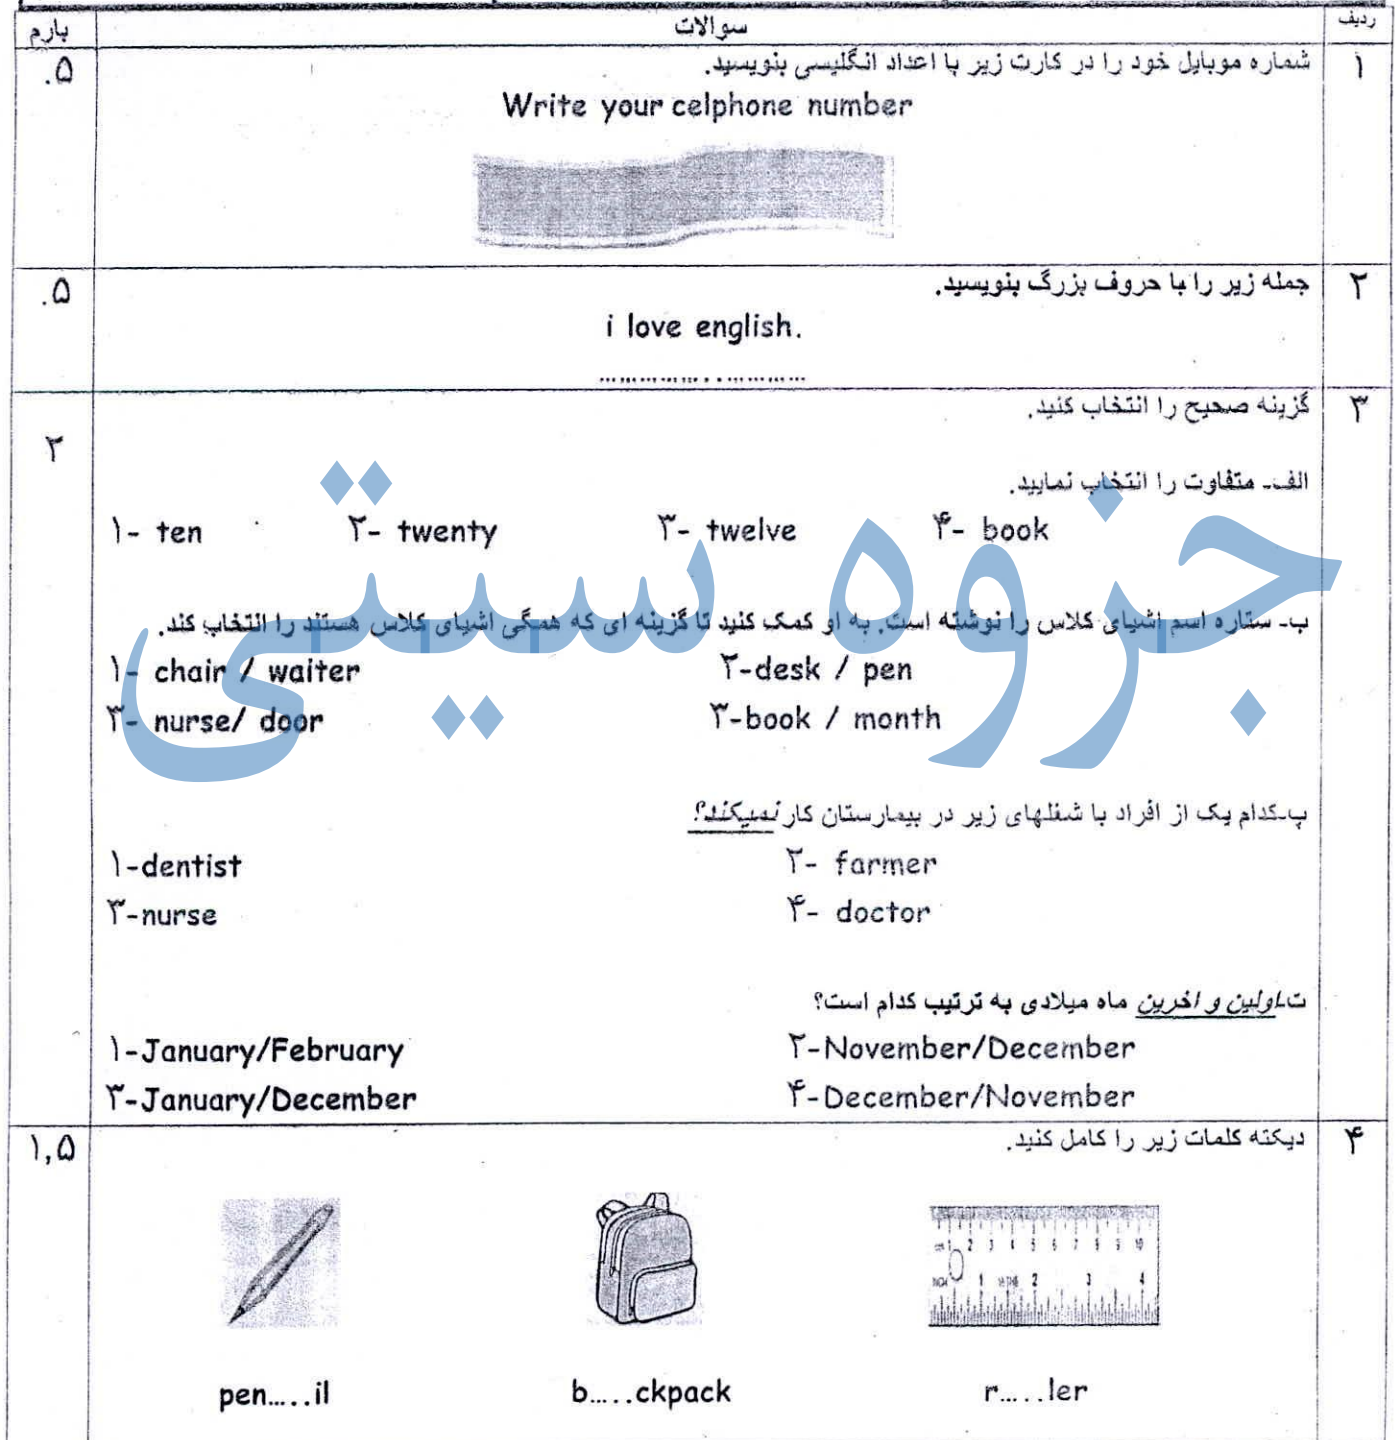 ردیف سوالات بارم
۱ شماره موبایل خود را در کارت زیر با اعداد انگلیسی بنویسید. ۵.
Write your celphone number
۲ جمله زیر را با حروف بزرگ بنویسید. ۵.
i love english.
۳ گزینه صحیح را انتخاب کنید. ۲
الف- متفاوت را انتخاب نمایید.
۱- ten ۲- twenty ۳- twelve ۴- book
جزوه سیتی
ب- ستاره اسم اشیای کلاس را نوشته است. به او کمک کنید تا گزینه ای که همگی اشیای کلاس هستند را انتخاب کند.
۱- chair / waiter ۲-desk / pen
۳- nurse/ door ۳-book / month
پ-کدام یک از افراد با شغلهای زیر در بیمارستان کار نمیکند؟
۱-dentist ۲- farmer
۳-nurse ۴- doctor
ت-اولین و اخرین ماه میلادی به ترتیب کدام است؟
۱-January/February ۲-November/December
۳-January/December ۴-December/November
۴ دیکته کلمات زیر را کامل کنید. ۱,۵
pen.....il b.....ckpack r.....ler